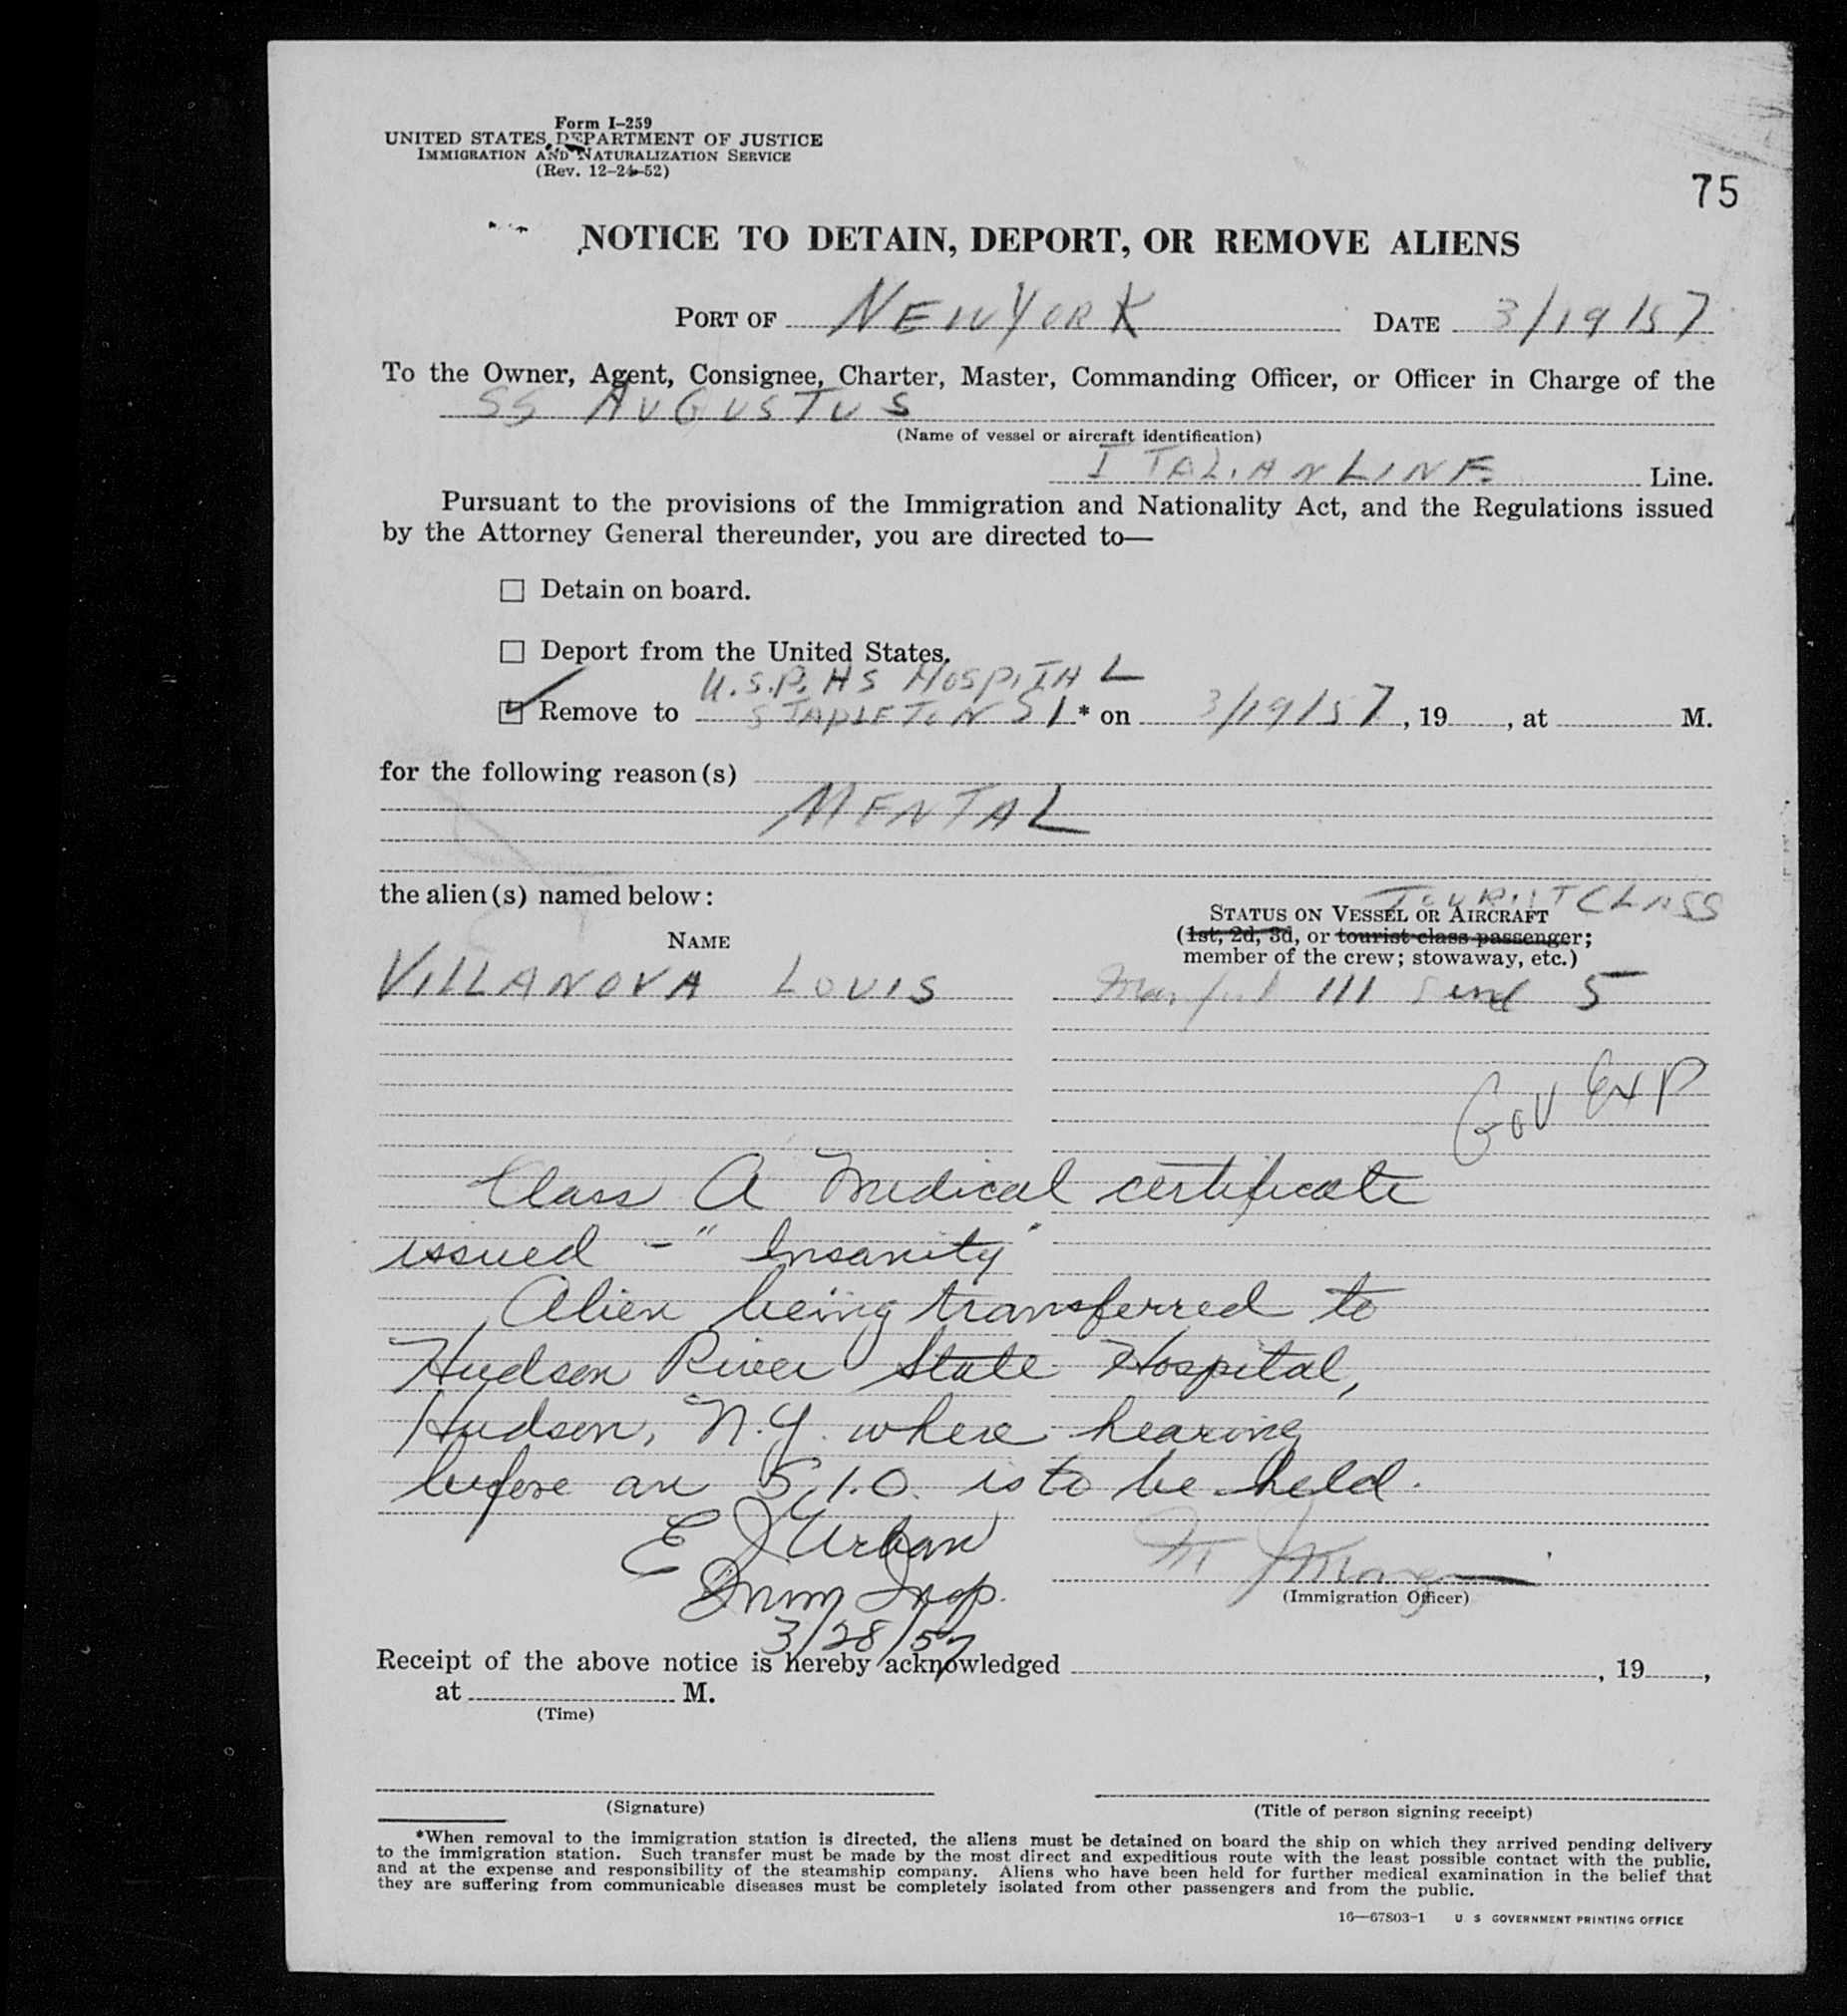 Form I-259
UNITED STATES DEPARTMENT OF JUSTICE
IMMIGRATION AND NATURALIZATION SERVICE
(Rev. 12-24-52)
75
NOTICE TO DETAIN, DEPORT, OR REMOVE ALIENS
PORT OF NEW YORK DATE 3/19/57
To the Owner, Agent, Consignee, Charter, Master, Commanding Officer, or Officer in Charge of the
SS AUGUSTUS
(Name of vessel or aircraft identification)
ITALIAN LINE Line.
Pursuant to the provisions of the Immigration and Nationality Act, and the Regulations issued
by the Attorney General thereunder, you are directed to—
☐ Detain on board.
☐ Deport from the United States.
U.S.P.HS HOSPITAL
☑ Remove to STAPLETON SI* on 3/19/57, 19, at M.
for the following reason(s)
MENTAL
the alien(s) named below:
TOURIST CLASS
STATUS ON VESSEL OR AIRCRAFT
NAME
(1st, 2d, 3d, or tourist-class passenger;
member of the crew; stowaway, etc.)
VILLANOVA LOUIS 111 5
GOV EXP
Class A Medical certificate
issued - "Insanity"
Alien being transferred to
Hudson River State Hospital,
Hudson, N.Y. where hearing
before an S.I.O. is to be held.
E J Urban
Imm Insp.
(Immigration Officer)
3/28/57
Receipt of the above notice is hereby acknowledged , 19 ,
at M.
(Time)
(Signature) (Title of person signing receipt)
*When removal to the immigration station is directed, the aliens must be detained on board the ship on which they arrived pending delivery
to the immigration station. Such transfer must be made by the most direct and expeditious route with the least possible contact with the public,
and at the expense and responsibility of the steamship company. Aliens who have been held for further medical examination in the belief that
they are suffering from communicable diseases must be completely isolated from other passengers and from the public.
16—67803-1 U S GOVERNMENT PRINTING OFFICE